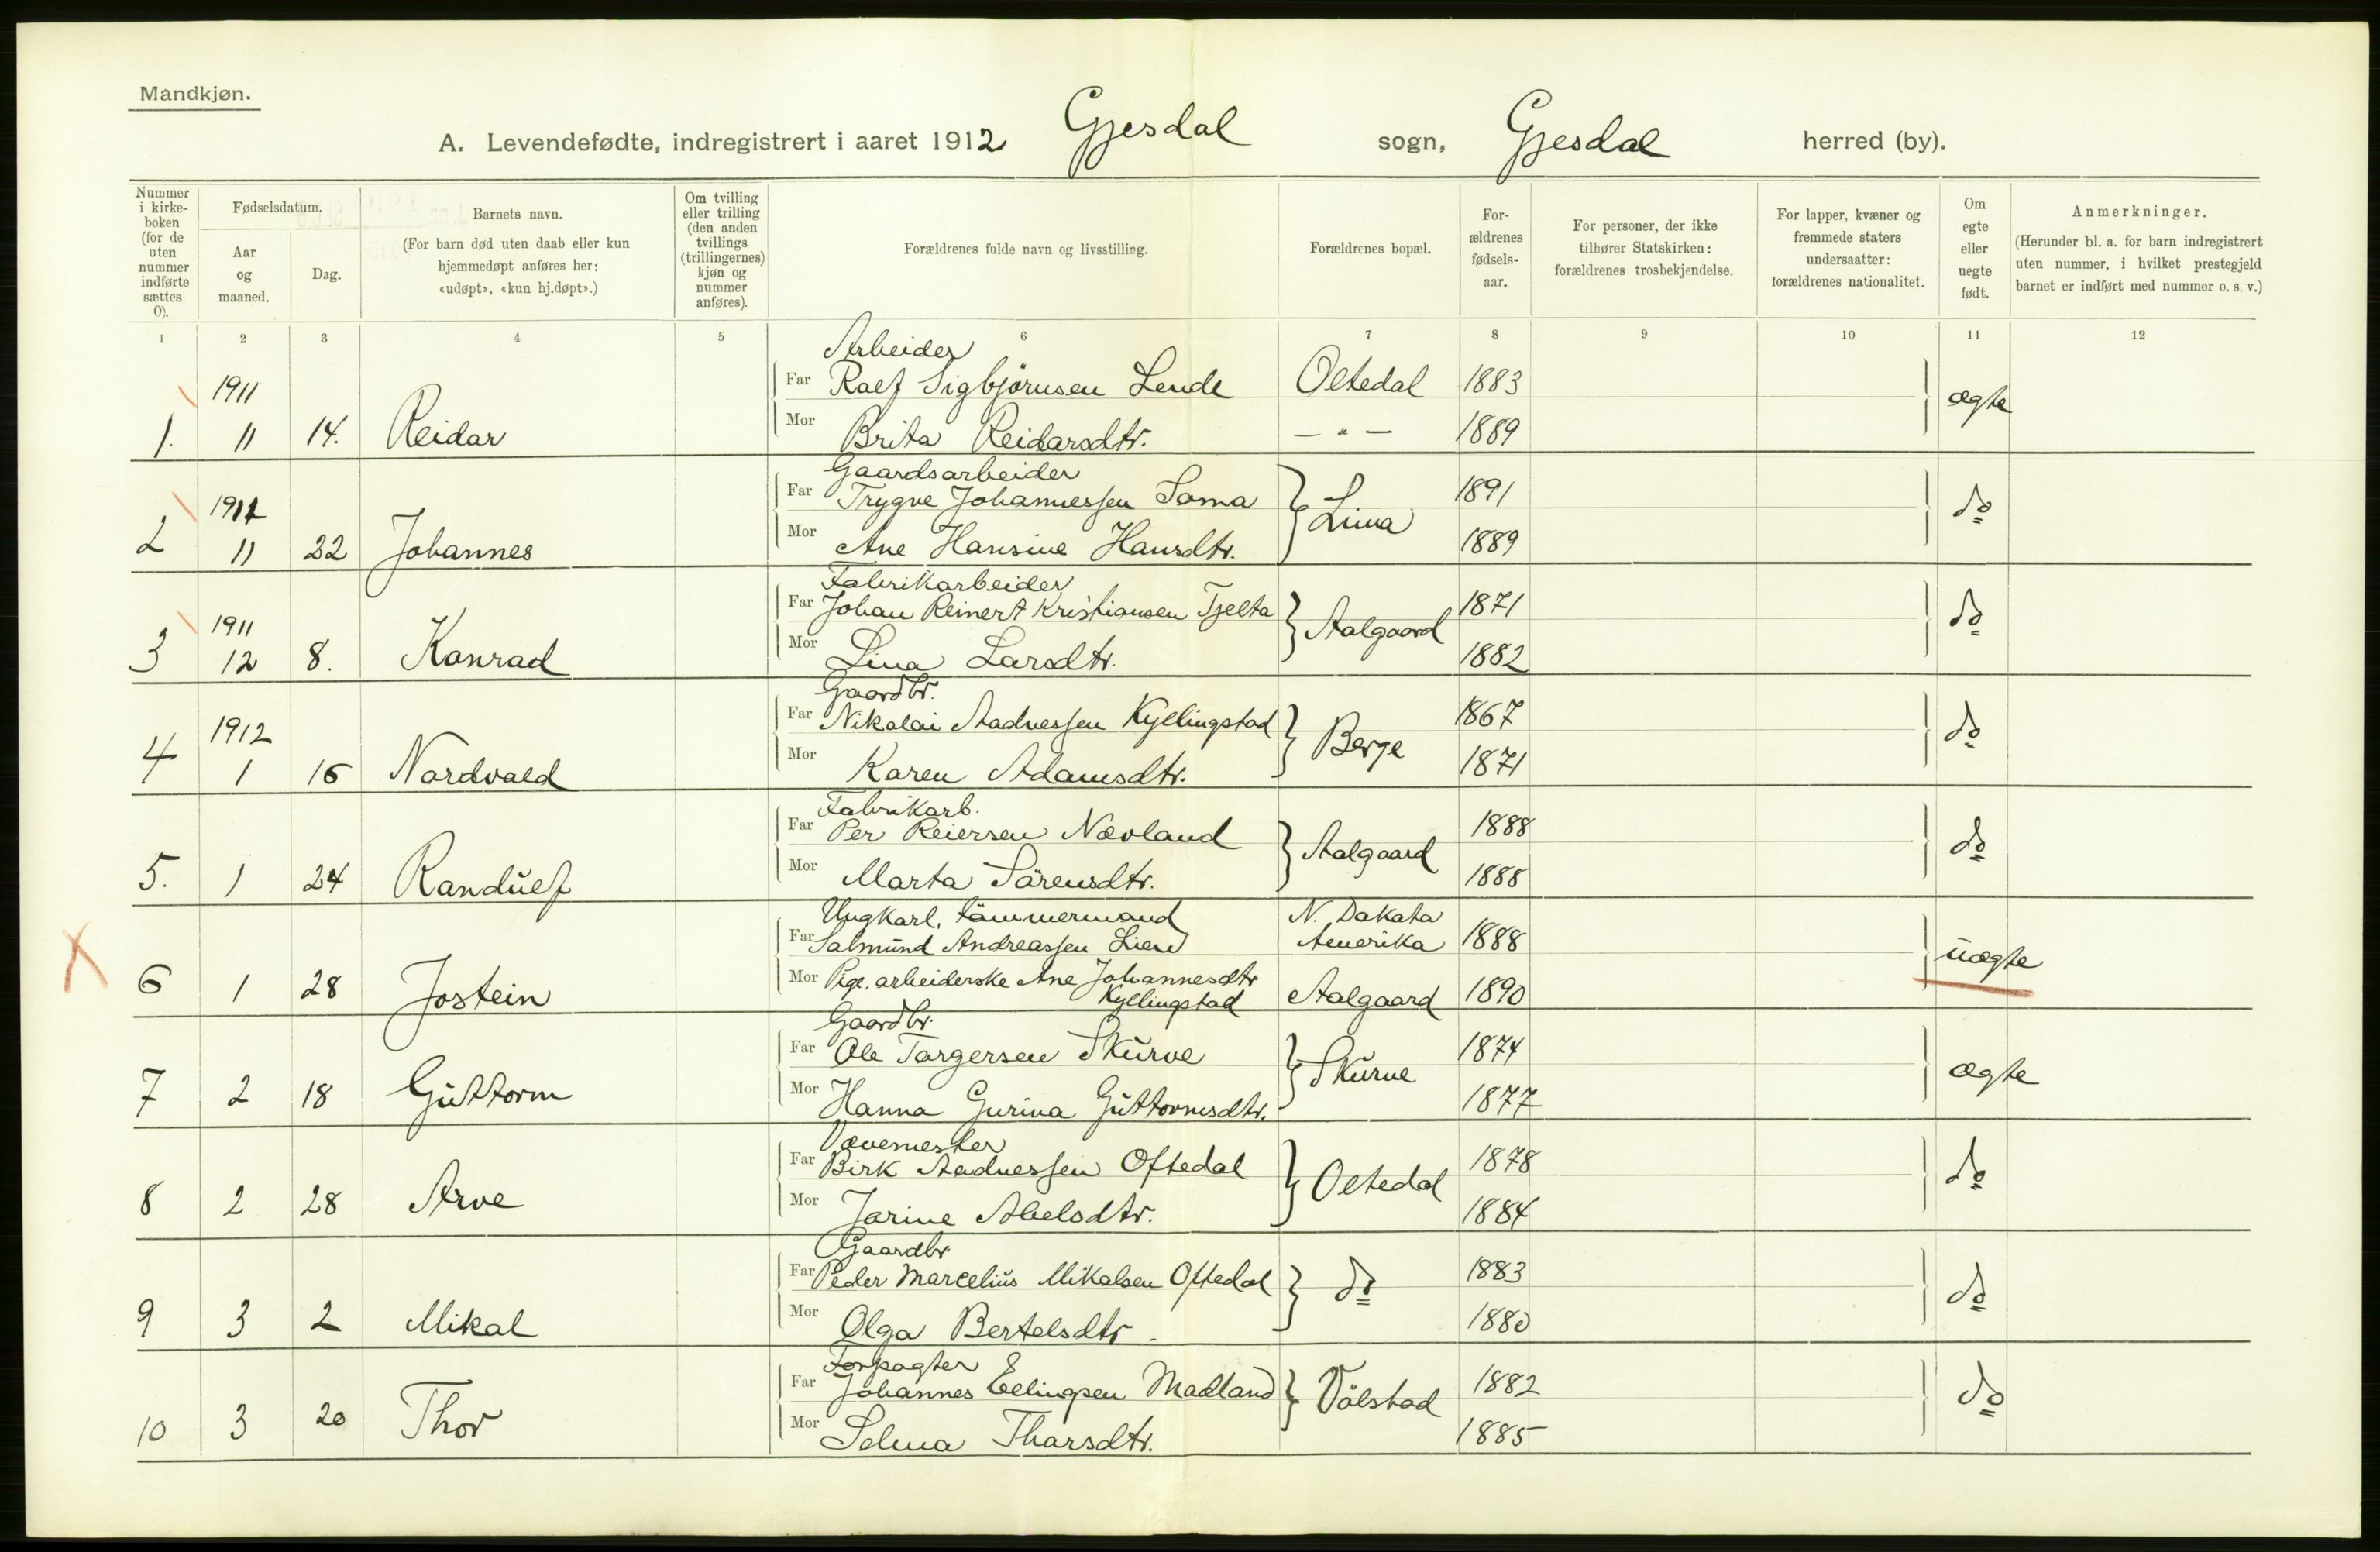 Mandkjøn.
A. Levendefødte, indregistrert i aaret 1912 Gjesdal sogn, Gjesdal herred (by).
Nummer i kirke-boken (for de uten nummer indførte sættes 0).
Fødselsdatum.
Aar og maaned.
Dag.
Barnets navn.
(For barn død uten daab eller kun hjemmedøpt anføres her: «udøpt», «kun hj.døpt».)
Om tvilling eller trilling (den anden tvillings (trillingernes) kjøn og nummer anføres).
Forældrenes fulde navn og livsstilling.
Forældrenes bopæl.
For-ældrenes fødsels-aar.
For personer, der ikke tilhører Statskirken: forældrenes trosbekjendelse.
For lapper, kvæner og fremmede staters undersaatter: forældrenes nationalitet.
Om egte eller uegte født.
Anmerkninger.
(Herunder bl. a. for barn indregistrert uten nummer, i hvilket prestegjeld barnet er indført med nummer o. s. v.)
1 2 3 4 5 6 7 8 9 10 11 12
Arbeider
1911 Far Ralf Sigbjørnsen Lende Oltedal 1883 ægte
1. 11 14. Reidar Mor Brita Reidarsdtr. — " — 1889
Gaardsarbeider
1911 Far Trygve Johannessen Soma Lima 1891 do
2 11 22 Johannes Mor Ane Hansine Hansdtr. 1889
Fabrikarbeider
1911 Far Johan Reinert Kristiansen Tjelta Aalgaard 1871 do
3 12 8. Konrad Mor Lina Larsdtr. 1882
Gaardbr.
1912 Far Nikolai Aadnessen Kyllingstad Berge 1867 do
4 1 16 Nordvald Mor Karen Adamsdtr. 1871
Fabrikarb.
Far Per Reiersen Nævland Aalgaard 1888 do
5. 1 24 Randulf Mor Marta Sørensdtr. 1888
Ungkarl, tømmermand N. Dakota
Far Salmund Andreassen Lien Amerika 1888 uægte
6 1 28 Jostein Mor Pige, arbeiderske Ane Johannesdtr
Kyllingstad Aalgaard 1890
Gaardbr.
Far Ole Torgersen Skurve Skurve 1874 ægte
7 2 18 Guttorm Mor Hanna Gurina Guttormsdtr. 1877
Vævemester
Far Birk Aadnessen Oftedal Oltedal 1878 do
8 2 28 Arve Mor Jorine Abelsdtr. 1884
Gaardbr
Far Peder Marcelius Mikalsen Oftedal do 1883 do
9 3 2 Mikal Mor Olga Bertelsdtr. 1880
Forpagter
Far Johannes Ellingsen Madland Vølstad 1882 do
10 3 20 Thor Mor Selma Thorsdtr. 1885